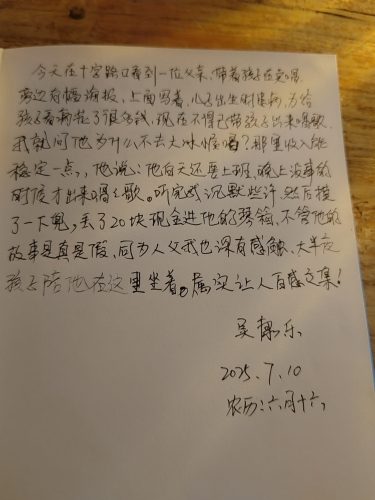 今天在十字路口看到一位父亲,带着孩子在卖唱
旁边有幅海报,上面写着,儿子出生时患病,为给
孩子看病花了很多钱,现在不得已带孩子出来唱歌,
我就问他为什么不去大冰唱?那里收入能
稳定一点,他说:他白天还要上班,晚上没事的
时候才出来唱唱歌。听完我沉默些许,然后摸
了一大兜,丢了20块现金进他的琴箱,不管他的
故事是真是假,同为人父我也深有感触,大半夜
孩子陪他在这里坐着。属实让人百感交集!
吴 乐
2025.7.10
农历:六月十六